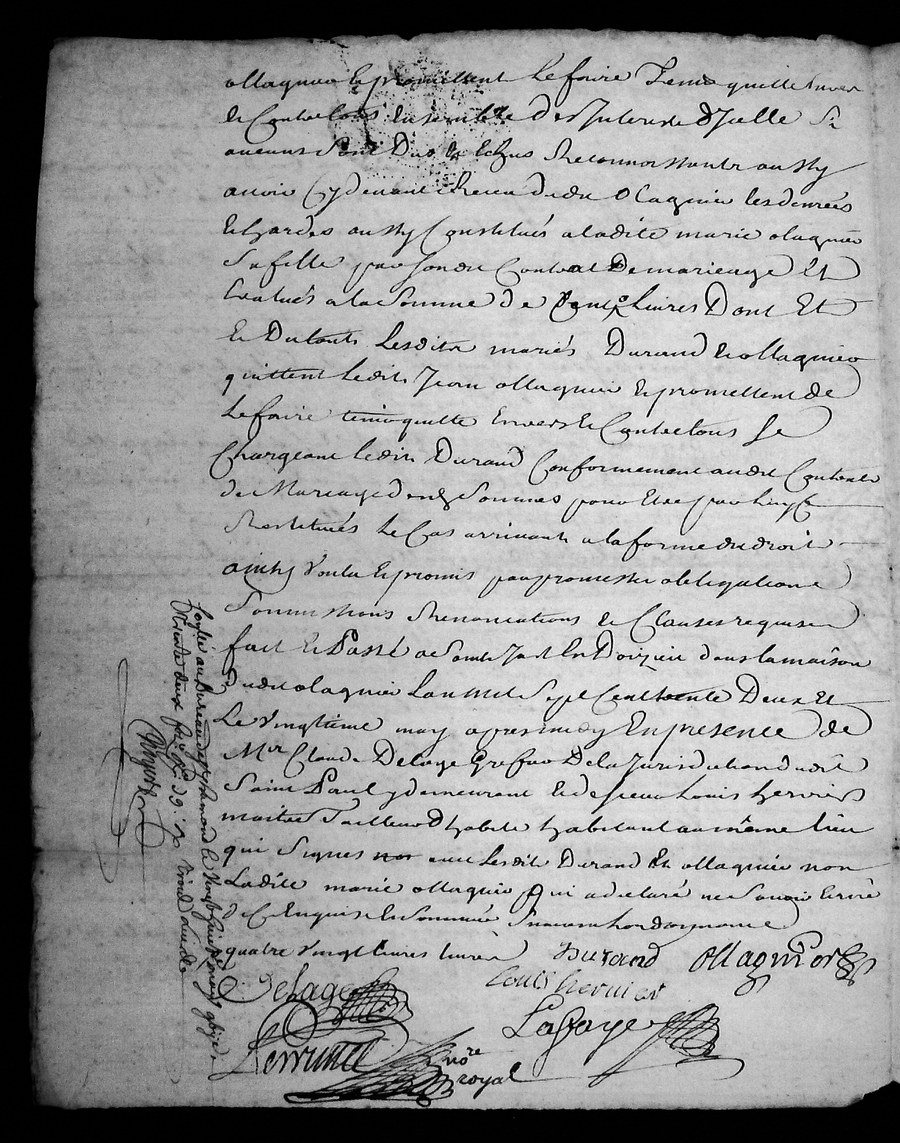 ollagnier et promettent le faire tenir quitte envers
et contre tous ensemble des Interests d'Icelle Si
aucuns sont Dus et Echus Reconnoissants aussy
avoir Cydevant Receu dudit Olagnier les denrées
et hardes aussy Constitués a ladite marie olagnier
Sa fille par Sondit Contrat De mariage Et
Evalués a la Somme de Cent Livres Dont Et
Et Du tout Lesdits mariés Durand et ollagnier
quittent ledit Jean ollagnier et promettent de
Le faire tenir quitte Envers et Contre tous Se
Chargeant ledit Durand Conformement audit Contrat
de Mariage Sommes pour Etre par luy
Restitués le Cas arrivant a la forme du droit
ainsy Voulu et promis par promesse obligations
Soumissions Renonciations et Clauses requises
fait et Passé a Saint Just En Doizieu dans la maison
dudit olagnier L'an mil Sept Cent trente Deux et
Le Vingtième may apres midy En presence de
Mre Claude Delage Greffier De la Jurisdiction dudit
Saint Paul y demeurant et de sieur Louis hervier
maitre Tailleur D'habits habitant au même lieu
qui Signes avec Lesdit Durand Et ollagnier non
Ladite marie ollagnier qui a declaré ne Savoir Ecrire
de ce Enquise et Sommée
quatre Vingt livres
Durand ollagnier
Delage Louis hervier
Lafaye
nore
royal
Controllé au Bureau de St Chamond le Vingt
trente deux